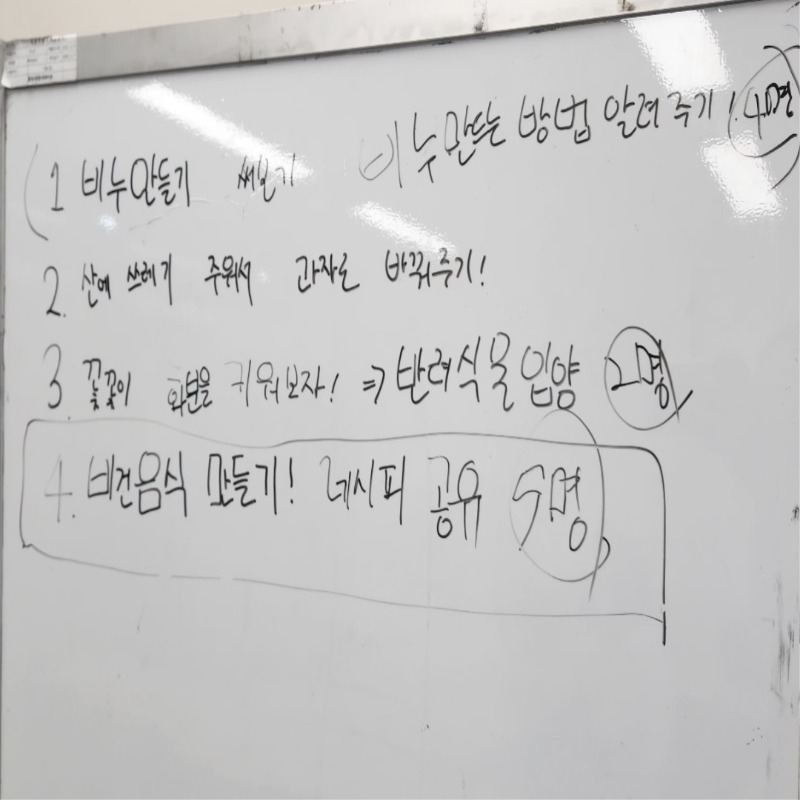 1 비누만들기 써보기 비누만드는 방법 알려주기! 4명
2. 산에 쓰레기 주워서 과자로 바꿔주기!
3 꽃꽂이 화분을 키워보자! ⇒ 반려식물입양 2명
4. 비건음식 만들기! 레시피 공유 5명